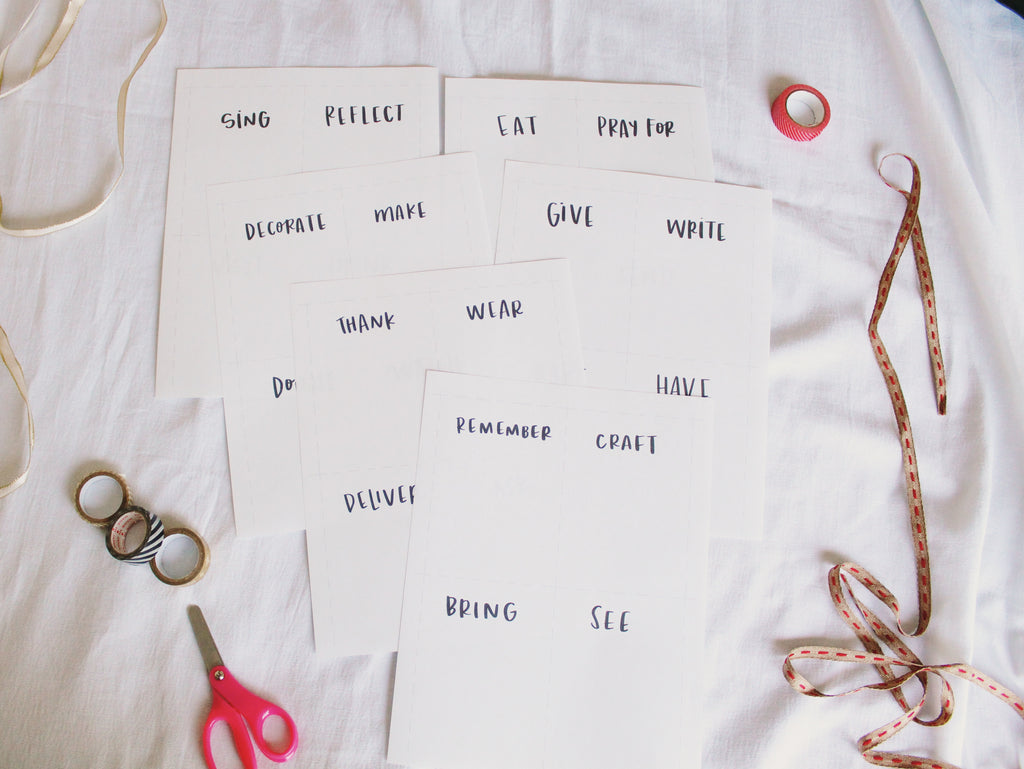 SiNG
REFLECT
EAT
PRAY FOR
DECORATE
MAKE
GiVE
WRiTE
THANK
WEAR
HAVE
REMEMBER
CRAFT
DELIVER
BRING
SEE